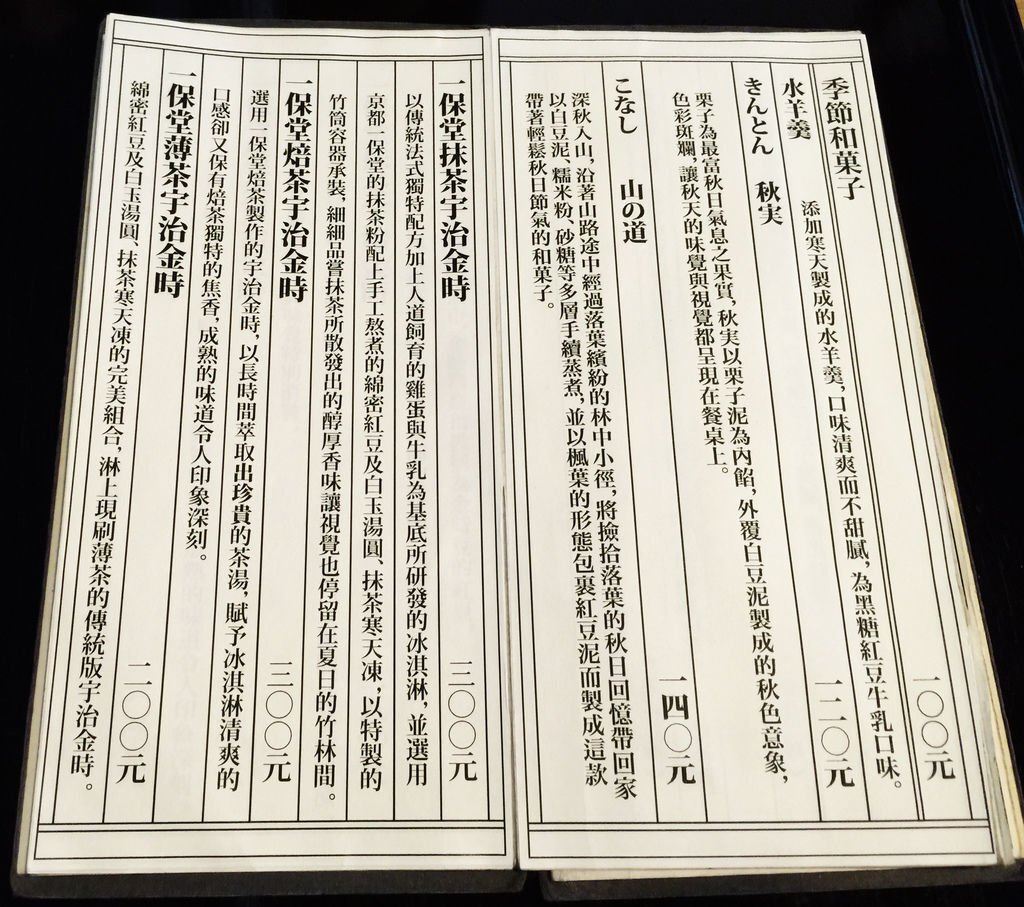 季節和菓子 一〇〇元
水羊羹 添加寒天製成的水羊羹，口味清爽而不甜膩，為黑糖紅豆牛乳口味。
きんとん 秋実 一二〇元
栗子為最富秋日氣息之果實，秋実以栗子泥為內餡，外覆白豆泥製成的秋色意象，
色彩斑斕，讓秋天的味覺與視覺都呈現在餐桌上。
こなし 山の道 一四〇元
深秋入山，沿著山路途中經過落葉繽紛的林中小徑，將撿拾落葉的秋日回憶帶回家
以白豆泥、糯米粉、砂糖等多層手續蒸煮，並以楓葉的形態包裹紅豆泥而製成這款
帶著輕鬆秋日節氣的和菓子。
一保堂抹茶宇治金時 三〇〇元
以傳統法式獨特配方加上人道飼育的雞蛋與牛乳為基底所研發的冰淇淋，並選用
京都一保堂的抹茶粉配上手工熬煮的綿密紅豆及白玉湯圓、抹茶寒天凍，以特製的
竹筒容器承裝，細細品嘗抹茶所散發出的醇厚香味讓視覺也停留在夏日的竹林間。
一保堂焙茶宇治金時 三〇〇元
選用一保堂焙茶製作的宇治金時，以長時間萃取出珍貴的茶湯，賦予冰淇淋清爽的
口感卻又保有焙茶獨特的焦香，成熟的味道令人印象深刻。
一保堂薄茶宇治金時 二〇〇元
綿密紅豆及白玉湯圓、抹茶寒天凍的完美組合，淋上現刷薄茶的傳統版宇治金時。